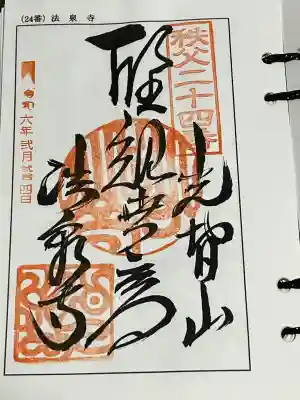 (24番) 法泉寺
秩父二十四番
光智山
聖観世音
法泉寺
令和六年弐月廿四日